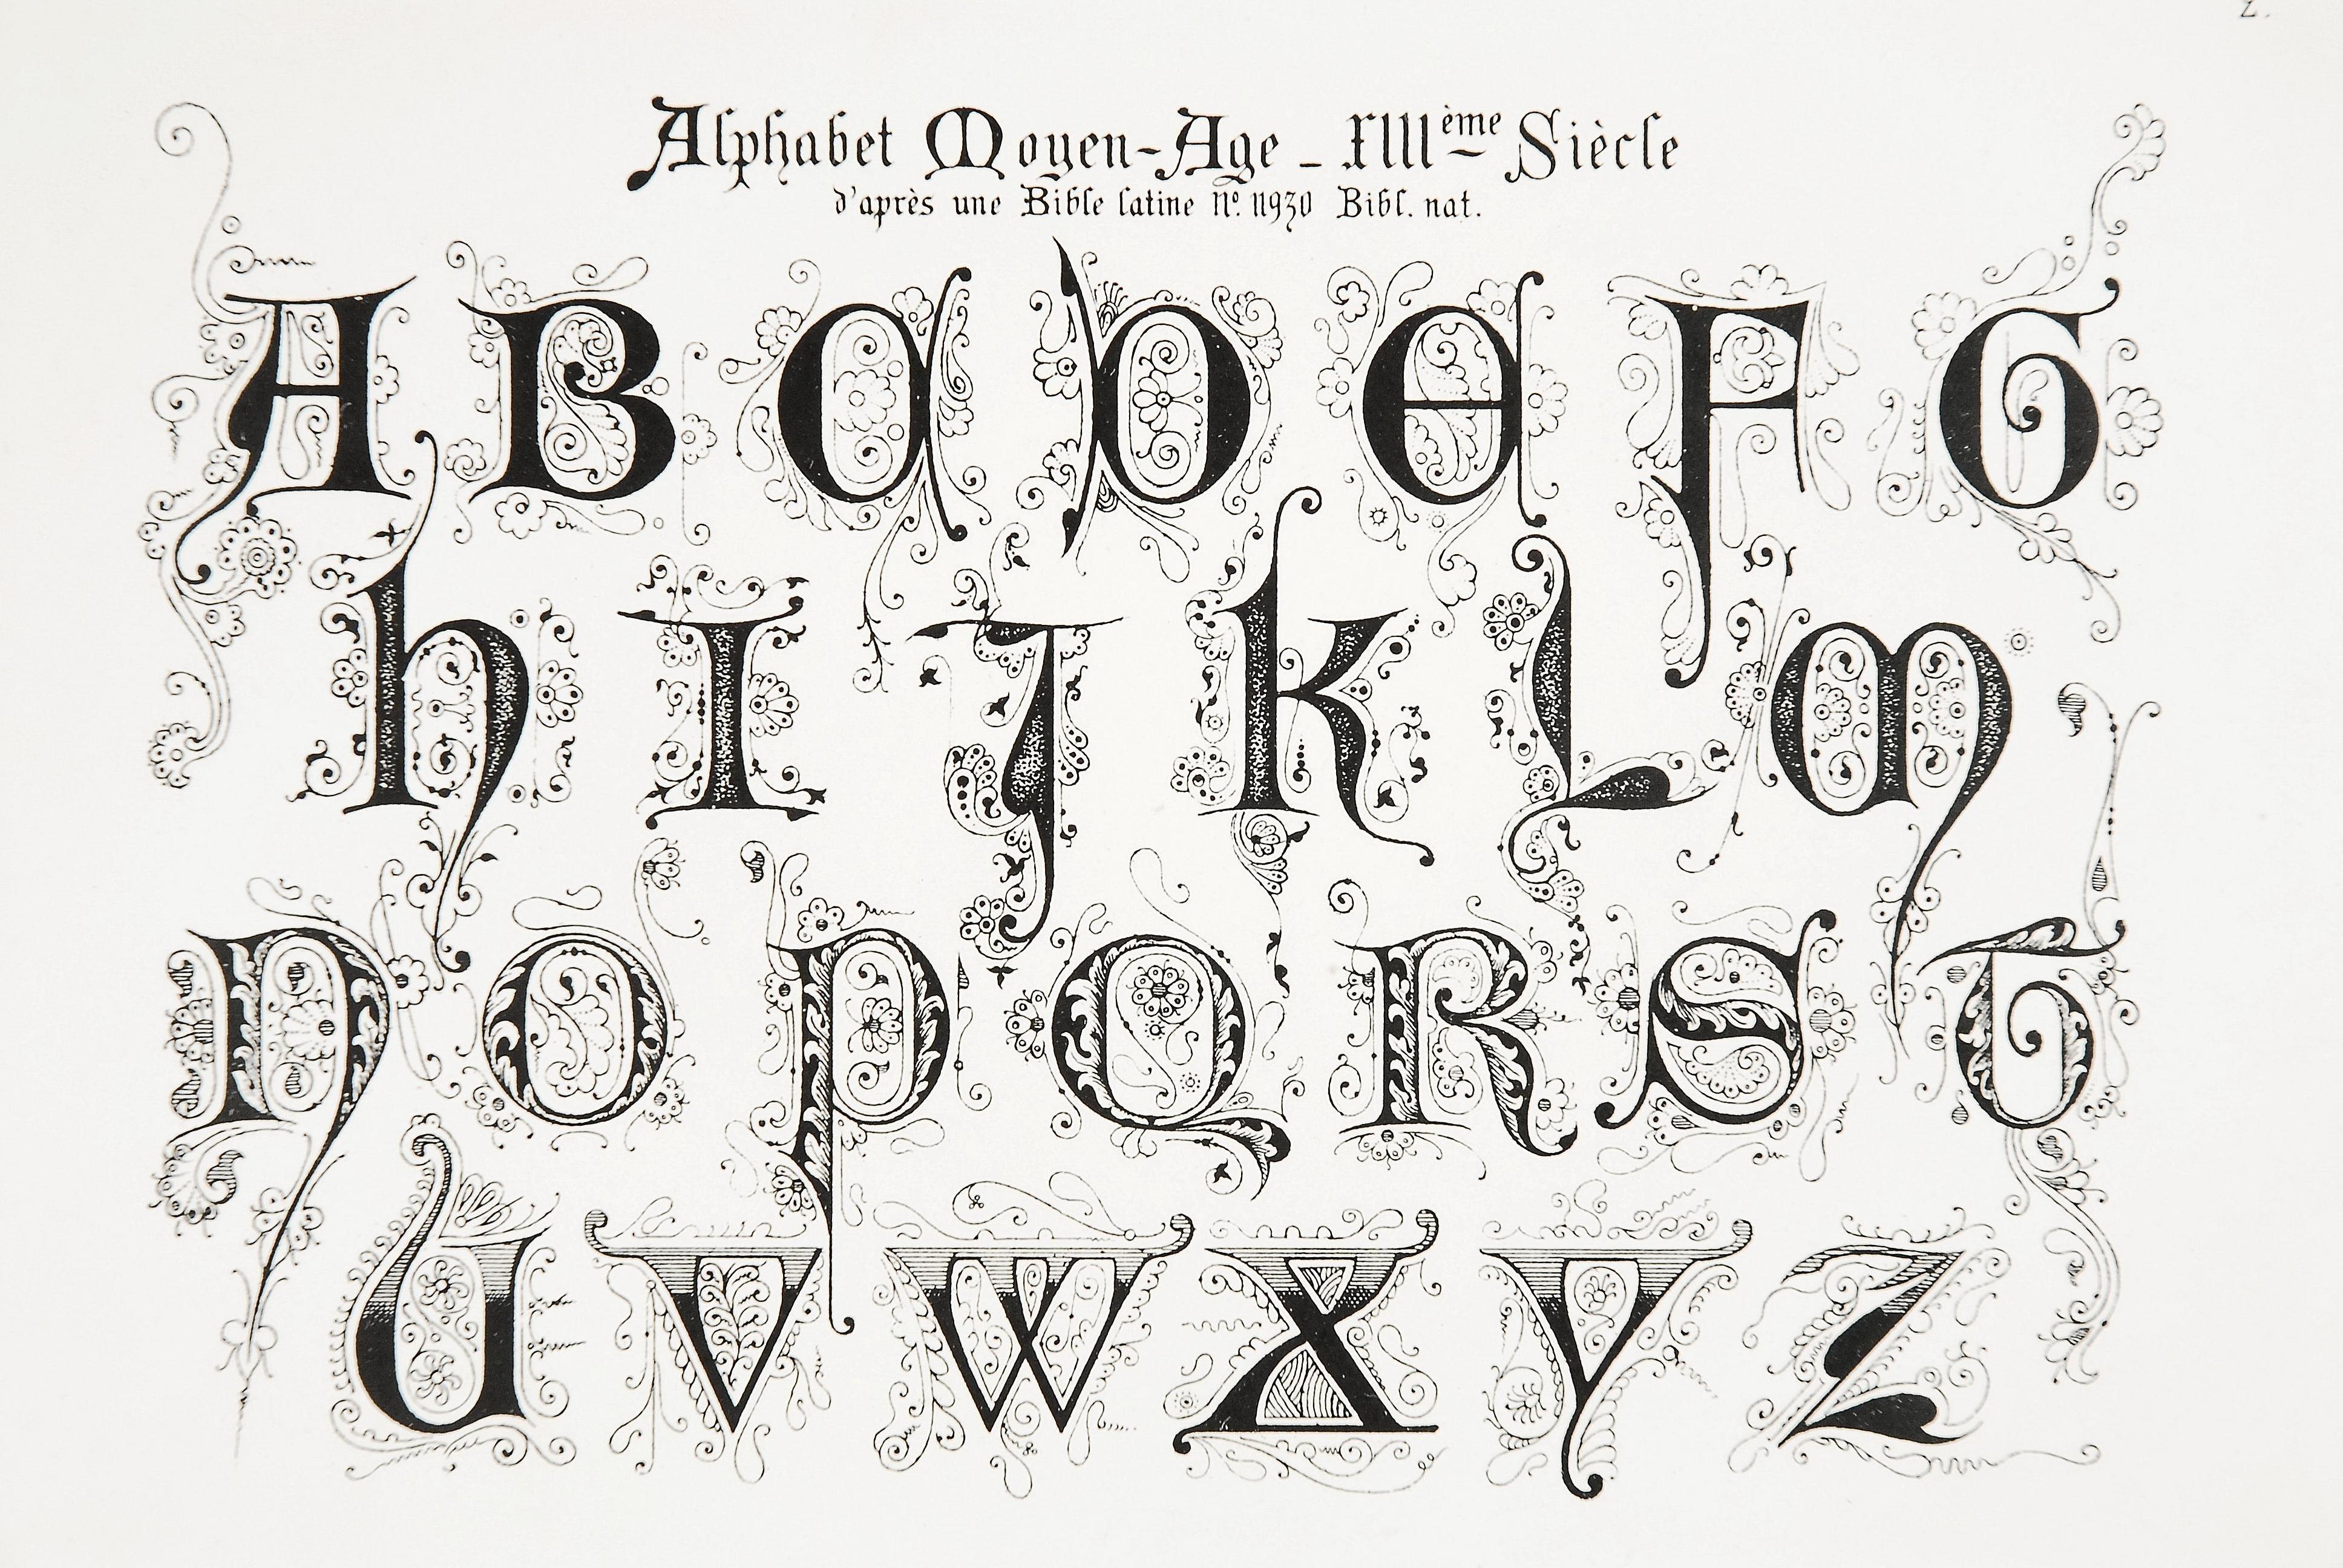 2.
Alphabet Moyen-Age _ XIIIème Siècle
d'après une Bible latine nº. 11930 Bibl. nat.
A B C D E F G
h I J K L M
N O P Q R S T
U V W X Y Z